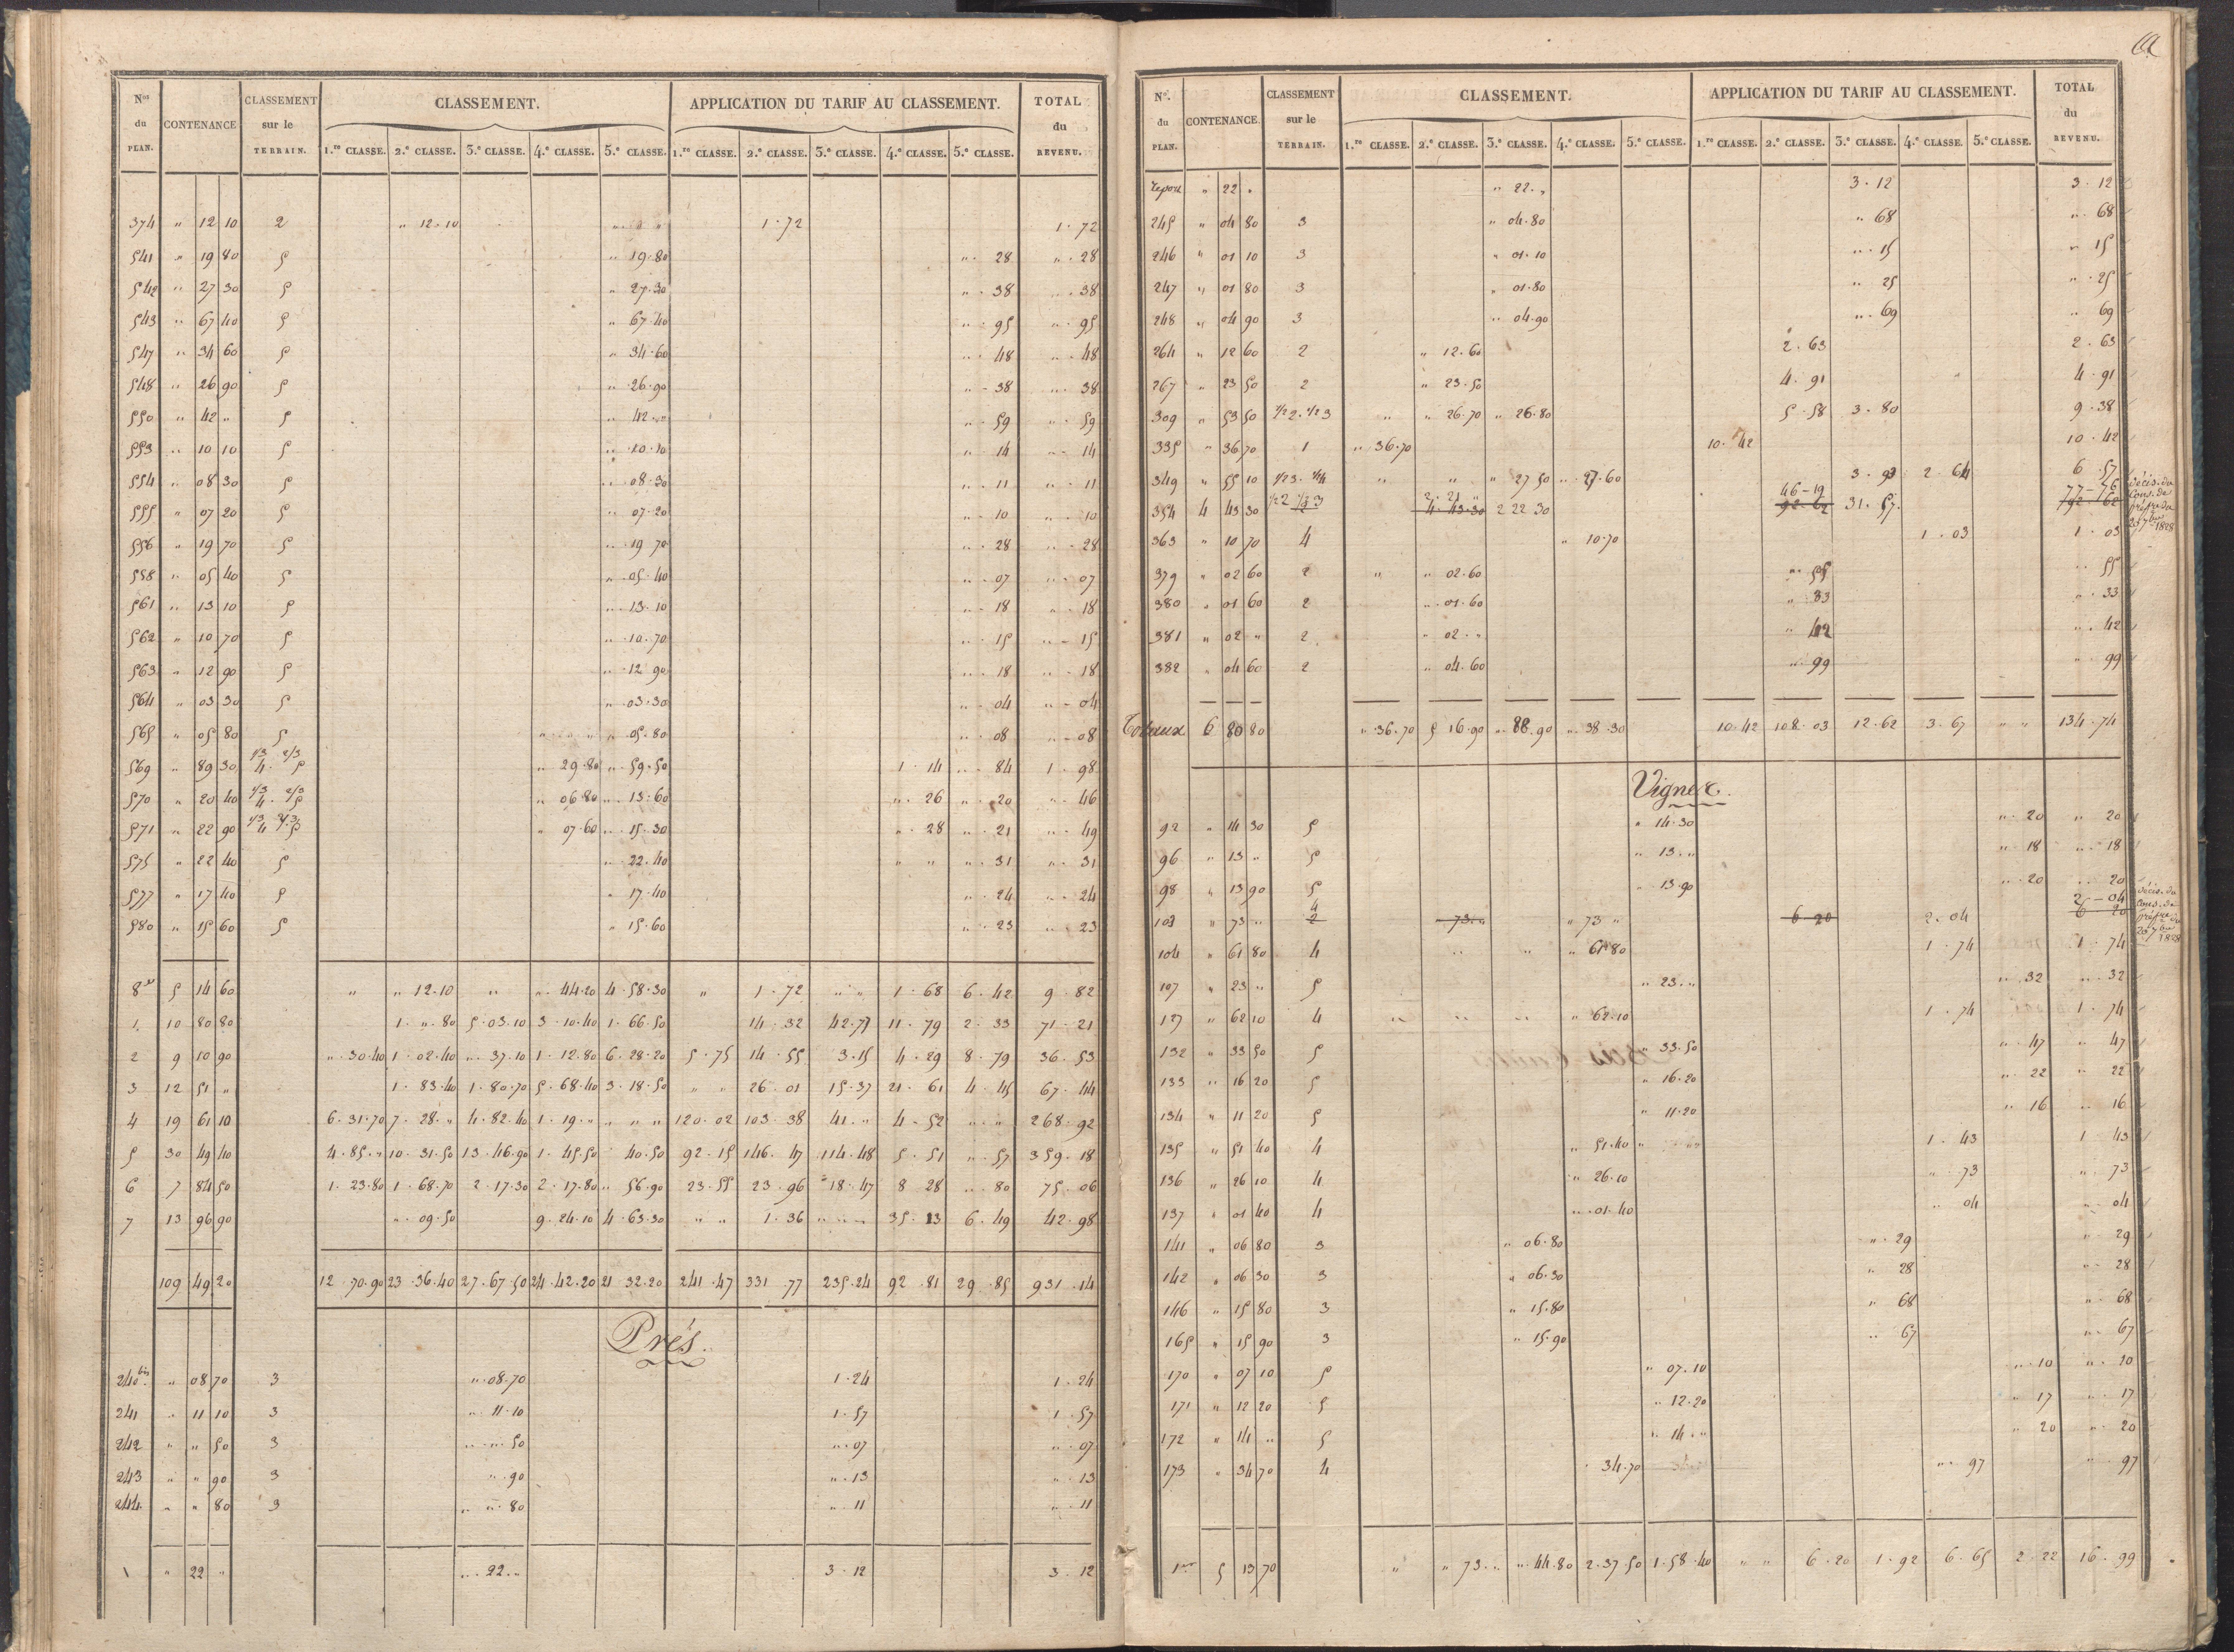 N.os du PLAN. CONTENANCE CLASSEMENT sur le TERRAIN. CLASSEMENT. APPLICATION DU TARIF AU CLASSEMENT. TOTAL du REVENU.
1.re CLASSE. 2.e CLASSE. 3.e CLASSE. 4.e CLASSE. 5.e CLASSE. 1.re CLASSE. 2.e CLASSE. 3.e CLASSE. 4.e CLASSE. 5.e CLASSE.
374 " 12 10 2 " 12.10 " " " 1.72 1.72
541 " 19 80 5 " 19.80 " 28 " 28
542 " 27 30 5 " 27.30 " 38 " 38
543 " 67 40 5 " 67.40 " 95 " 95
547 " 34 60 5 " 34.60 " 48 " 48
548 " 26 90 5 " 26.90 " 38 " 38
550 " 42 " 5 " 42 " " 59 " 59
553 " 10 10 5 " 10.10 " 14 " 14
554 " 08 30 5 " 08.30 " 11 " 11
555 " 07 20 5 " 07.20 " 10 " 10
556 " 19 70 5 " 19 70 " 28 " 28
558 " 05 40 5 " 05.40 " 07 " 07
561 " 13 10 5 " 13.10 " 18 " 18
562 " 10 70 5 " 10.70 " 15 " 15
563 " 12 90 5 " 12 90 " 18 " 18
564 " 03 30 5 " 03.30 " 04 " 04
565 " 05 80 5 " " " " 05.80 " 08 " 08
569 " 89 30 1/3 4. 2/3 5 " 29.80 " 59.50 1.14 " 84 1.98
570 " 20 40 1/3 4. 2/3 5 " 06.80 " 13.60 " 26 " 20 " 46
571 " 22 90 1/3 4 2/3 5 " 07.60 " 15.30 " 28 " 21 " 49
575 " 22 40 5 " 22.40 " " " 31 " 31
577 " 17 40 5 " 17.40 " 24 " 24
580 " 15 60 5 " 15.60 " 23 " 23
8 5 14 60 " " 12.10 " " 44.20 4.58.30 " 1.72 " " 1.68 6.42 9.82
1. 10 80 80 1. " .80 5.03.10 3.10.40 1.66.50 14.32 42.77 11.79 2.33 71.21
2 9 10 90 " 30.40 1.02.40 " 37.10 1.12.80 6.28.20 5.75 14.55 3.15 4.29 8.79 36.53
3 12 51 " 1.83.40 1.80.70 5.68.40 3.18.50 " " 26.01 15.37 21.61 4.45 67.44
4 19 61 10 6.31.70 7.28. " 4.82.40 1.19. " " " " 120.02 103.38 41. " 4.52 " " 268.92
5 30 49 40 4.85. " 10.31.50 13.46.90 1.45.50 40.50 92.15 146.47 114.48 5.51 " 57 359.18
6 7 84 50 1.23.80 1.68.70 2.17.30 2.17.80 " 56.90 23.55 23.96 18.47 8 28 " 80 75.06
7 13 96 90 " 09.50 9.24.10 4.63.30 " " 1.36 " " " 35.13 6.49 42.98
109 49 20 12.70.90 23.36.40 27.67.50 24.42.20 21 32.20 241.47 331.77 235.24 92.81 29.85 931.14
Prés.
240 bis " 08 70 3 " 08.70 1.24 1.24
241 " 11 10 3 " 11.10 1.57 1.57
242 " " 50 3 " " 50 " 07 " 07
243 " " 90 3 " 90 " 13 " 13
244 " " 80 3 " " 80 " 11 " 11
" 22 " " 22. " 3.12 3.12
N.o du PLAN. CONTENANCE. CLASSEMENT sur le TERRAIN. CLASSEMENT. APPLICATION DU TARIF AU CLASSEMENT. TOTAL du REVENU.
1.re CLASSE. 2.e CLASSE. 3.e CLASSE. 4.e CLASSE. 5.e CLASSE. 1.re CLASSE. 2.e CLASSE. 3.e CLASSE. 4.e CLASSE. 5.e CLASSE.
Report " 22 " " 22. " 3.12 3.12
245 " 04 80 3 " 04.80 " 68 " 68
246 " 01 10 3 " 01.10 " 15 " 15
247 " 01 80 3 " 01.80 " 25 " 25
248 " 04 90 3 " 04.90 " 69 " 69
264 " 12 60 2 " 12.60 2.63 2.63
267 " 23 50 2 " 23.50 4.91 4.91
309 " 53 50 1/2 2. 1/2 3 " " 26.70 " 26.80 5.58 3.80 9.38
335 " 36 70 1 " 36.70 10.42 10.42
349 " 55 10 1/2 3. 1/2 4 " " " 27 50 " 27.60 3.93 2.64 6.57
354 4 43 30 1/2 2 1/2 3 2 2.21 " 4.43.30 2 22 30 46-19 92.62 31.57. 77-76 792.62 décis. du Cons. de préf.re du 25 7bre 1828
363 " 10 70 4 " 10.70 1.03 1.03
379 " 02 60 2 " " 02.60 " 55 " 55
380 " 01 60 2 " 01.60 " 33 " 33
381 " 02 " 2 " 02. " " 42 " 42
382 " 04 60 2 " 04.60 " 99 " 99
Totaux 6 80 80 " 36.70 5 16.90 " 88.90 " 38.30 10.42 108.03 12.62 3.67 " " 134.74
Vignes.
92 " 14 30 5 " 14.30 " 20 " 20
96 " 13 " 5 " 13. " " 18 " 18
98 " 13 90 5 " 13.90 " 20 " 20
103 " 73 " 4 2 " 73. " " 73 " 6 20 2.04 2-04 6 20 décis. du Cons. de préf.re du 25 7bre 1828
104 " 61 80 4 " " " 61.80 1.74 1.74
107 " 23 " 5 " 23. " " 32 " 32
127 " 62 10 4 " " " " 62.10 1.74 1.74
132 " 33 50 5 " 33.50 " 47 " 47
133 " 16 20 5 " 16.20 " 22 " 22
134 " 11 20 5 " 11.20 " 16 " 16
135 " 51 40 4 " 51.40 " " 1.43 1.43
136 " 26 10 4 " 26.10 " 73 " 73
137 " 01 40 4 " 01.40 " 04 " 04
141 " 06 80 3 " 06.80 " 29 " 29
142 " 06 30 3 " 06.30 " 28 " 28
146 " 15 80 3 " 15.80 " 68 " 68
165 " 15 90 3 " 15.90 " 67 " 67
170 " 07 10 5 " 07.10 " 10 " 10
171 " 12 20 5 " 12.20 " 17 " 17
172 " 14 " 5 " 14. " " 20 " 20
173 " 34 70 4 " 34.70 " 97 " 97
1re 5 13 70 " " 73. " " 44.80 2.37.50 1.58.40 " " 6.20 1.92 6.65 2.22 16.99